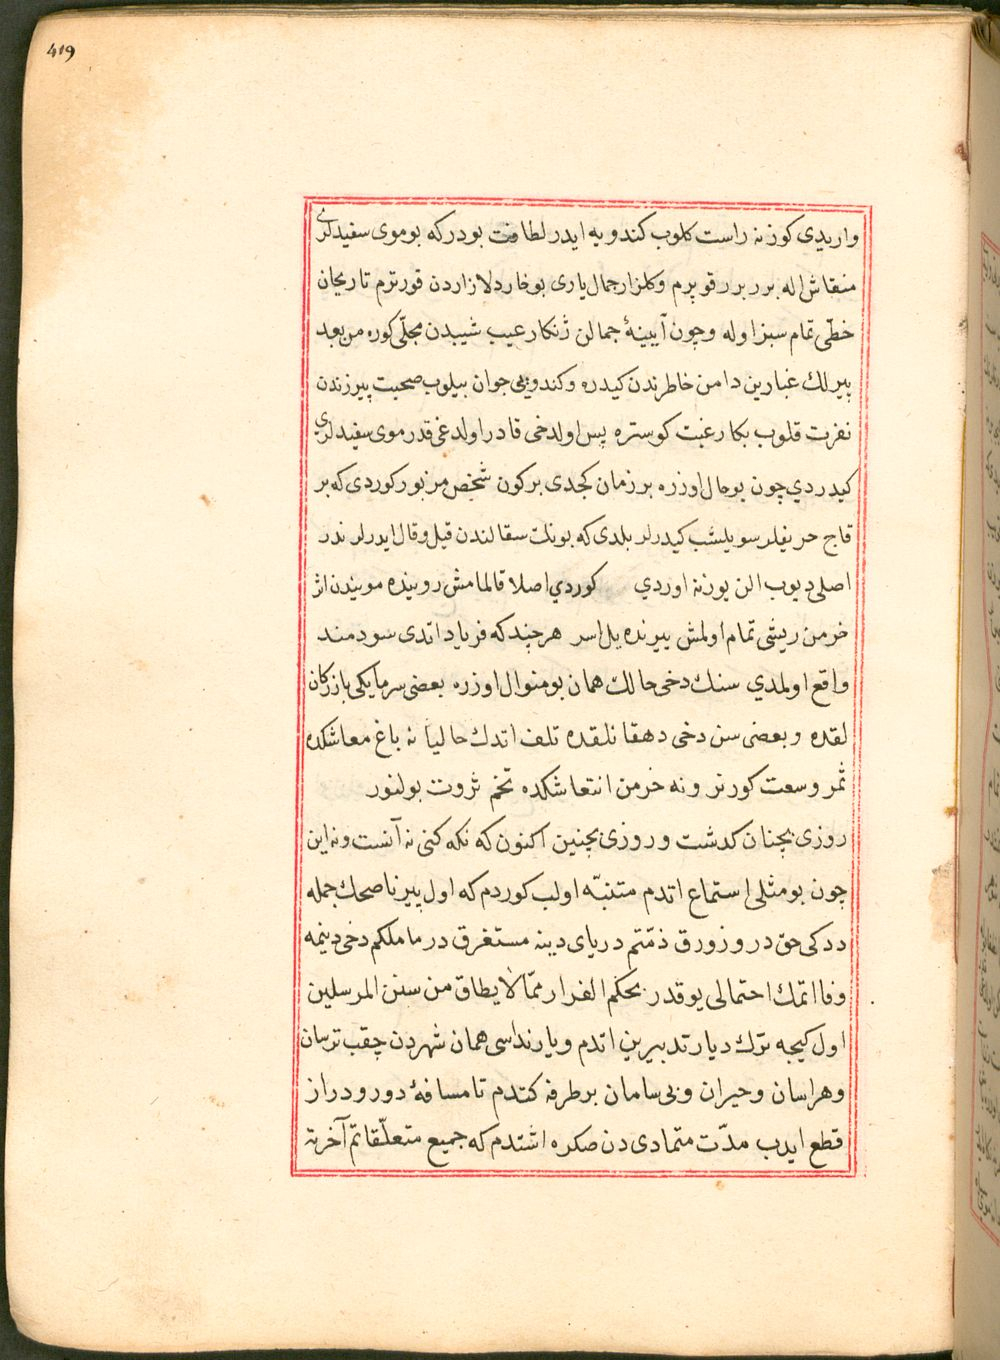 419
واریدی کوزنه راست کلوب کندویه ایدر لطافت بودرکه بو موی سفیدلری
منقاش اله برر برر قوپرم و کلزار جمال یاری بو خار دلازاردن قورترم تا ریحان
خطّی تمام سبز اوله و چون آیینهٔ جمالن ژنکار عیب شیبدن مجلّی کوره من بعد
پیرلك غبارین دامن خاطرندن کیدره و کندویی جوان بیلوب صحبت پیرزندن
نفرت قلوب بکا رغبت کوستره پس اولدخی قادر اولدغی قدر موی سفیدلری
کیدردی چون بو حال اوزره بر زمان کجدی بر کون شخص مزبور کوردی که بر
قاج حریفلر سویلشب کیدرلر بلدی که بونك سقالندن قیل و قال ایدرلر ندر
اصلی دیوب الن یوزنه اوردی کوردی اصلا قالمامش روینده موییندن اثر
خرمن ریشی تمام اولمش ییرنده یل اسر هر چند که فریاد اتدی سودمند
واقع اولمدی سنك دخی حالك همان بو منوال اوزره بعضی سرمایکی بازرکان
لقده و بعضی سن دخی دهقانلقده تلف اتدك حالیا نه باغ معاشکده
ثمر وسعت کورنر و نه خرمن انتعاشکده تخم ثروت بولنور
روزی بچنان کدشت و روزی بچنین اکنون که نکه کنی نه آنست و نه این
چون بو مثلی استماع اتدم متنبّه اولب کوردم که اول پیر ناصحك جمله
ددکی حق در و زورق ذمّتم دریای دینه مستغرق در ما ملکم دخی دینمه
وفا اتمك احتمالی یوقدر بحکم الفرار ممّا لا یطاق من سنن المرسلین
اول کیجه ترك دیار تدبیرین اتدم و یارنداسی همان شهردن چقب ترسان
و هراسان و حیران و بی سامان بر طرفه کتدم تا مسافهٔ دور و دراز
قطع ایدب مدّت متمادی دن صکره اشتدم که جمیع متعلّقاتم آخرته